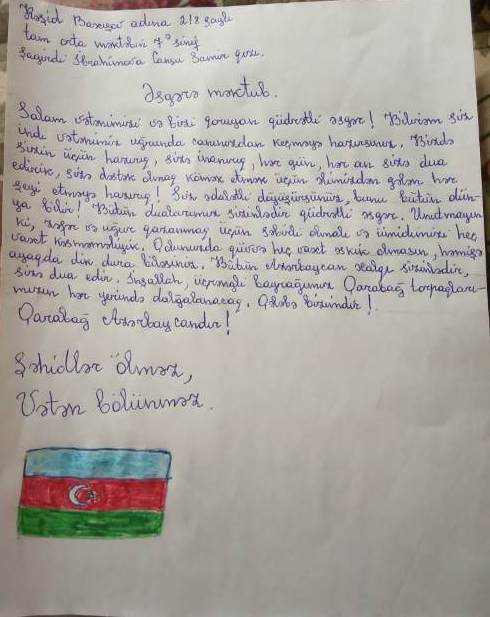 Rəşid Baxışov adına 212 saylı
tam orta məktəbin 7ᵊ sinif
şagirdi İbrahimova Cansu Samir qızı.
Əsgərə məktub.
Salam vətənimizi və bizi qoruyan qüdrətli əsgər! Bilirəm siz
indi vətənimiz uğrunda canınızdan keçməyə hazırsınız. Bizdə
sizin üçün hazırıq, sizə inanırıq, hər gün, hər an sizə dua
edirik, sizə dəstək olmaq kömək etmək üçün əlimizdən gələn hər
şeyi etməyə hazırıq! Siz ədalətli döyüşürsünüz, bunu bütün dün-
ya bilir! Bütün dualarımız sizinlədir qüdrətli əsgər. Unutmayın
ki, zəfər və uğur qazanmaq üçün səbirli olmalı və ümidimizi heç
vaxt kəsməməliyik. Qolunuzda qüvvə heç vaxt əskik olmasın, həmişə
ayaqda dik dura biləsiniz. Bütün Azərbaycan xalqı sizinlədir,
sizə dua edir. İnşallah, üçrəngli bayrağımız Qarabağ torpaqları-
mızın hər yerində dalğalanacaq. Qələbə bizimdir!
Qarabağ Azərbaycandır!
Şəhidlər ölməz,
Vətən bölünməz.